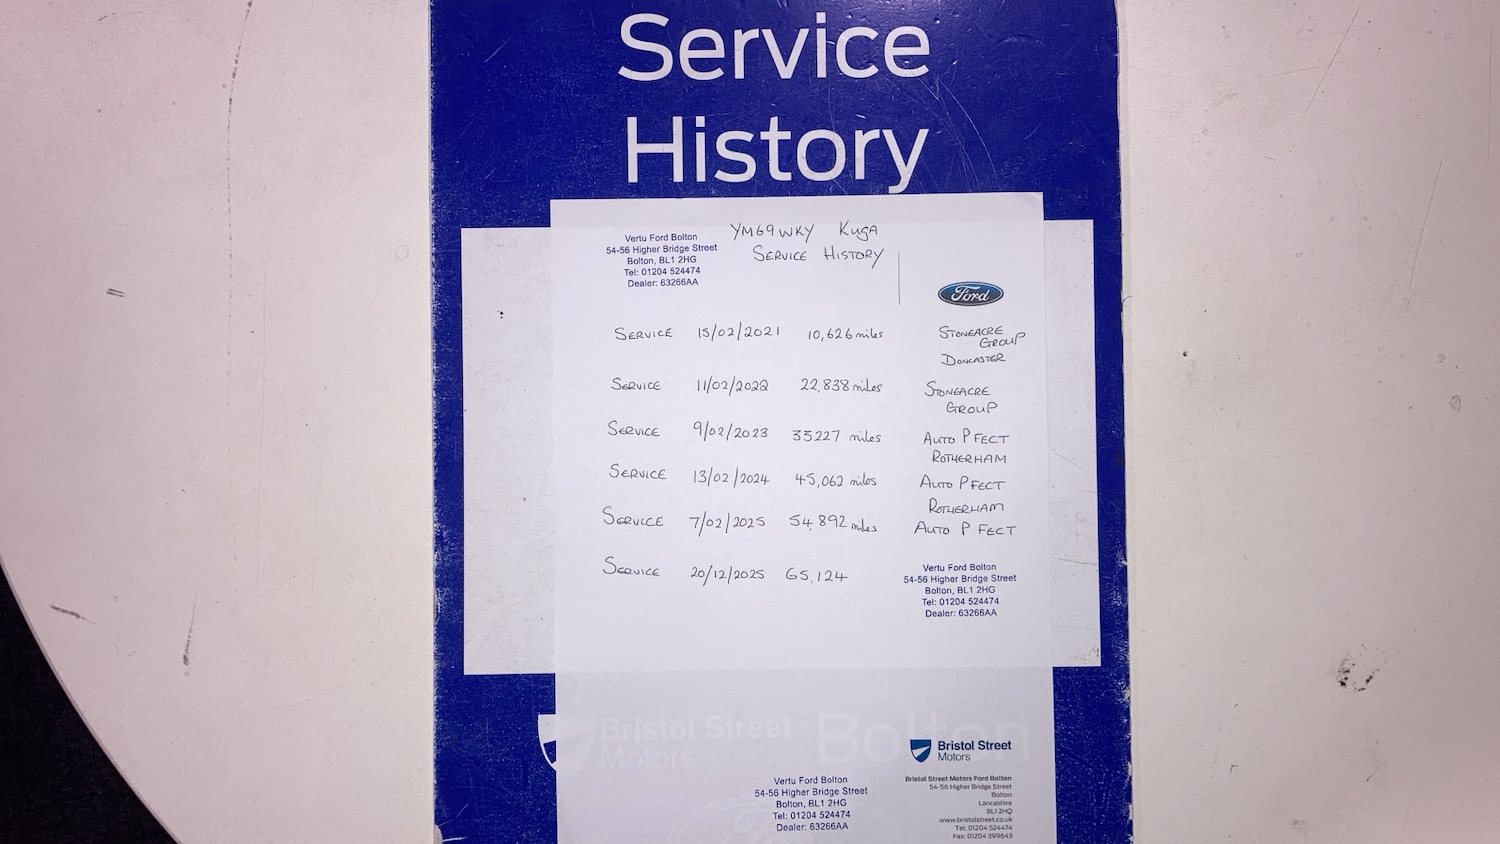 Service
History
YM69WKY Kuga
SERVICE HISTORY
Vertu Ford Bolton
54-56 Higher Bridge Street
Bolton, BL1 2HG
Tel: 01204 524474
Dealer: 63266AA
Ford
SERVICE 15/02/2021 10,626 miles STONEACRE
GROUP
DONCASTER
SERVICE 11/02/2022 22,838 miles STONEACRE
GROUP
SERVICE 9/02/2023 35227 miles AUTO P FECT
ROTHERHAM
SERVICE 13/02/2024 45,062 miles AUTO P FECT
ROTHERHAM
SERVICE 7/02/2025 54,892 miles AUTO P FECT
SERVICE 20/12/2025 65,124
Vertu Ford Bolton
54-56 Higher Bridge Street
Bolton, BL1 2HG
Tel: 01204 524474
Dealer: 63266AA
Bristol Street
Motors
Bolton
Bristol Street
Motors
Vertu Ford Bolton
54-56 Higher Bridge Street
Bolton, BL1 2HG
Tel: 01204 524474
Dealer: 63266AA
Bristol Street Motors Ford Bolton
54-56 Higher Bridge Street
Bolton
Lancashire
BL1 2HQ
www.bristolstreet.co.uk
Tel: 01204 524474
Fax: 01204 399643